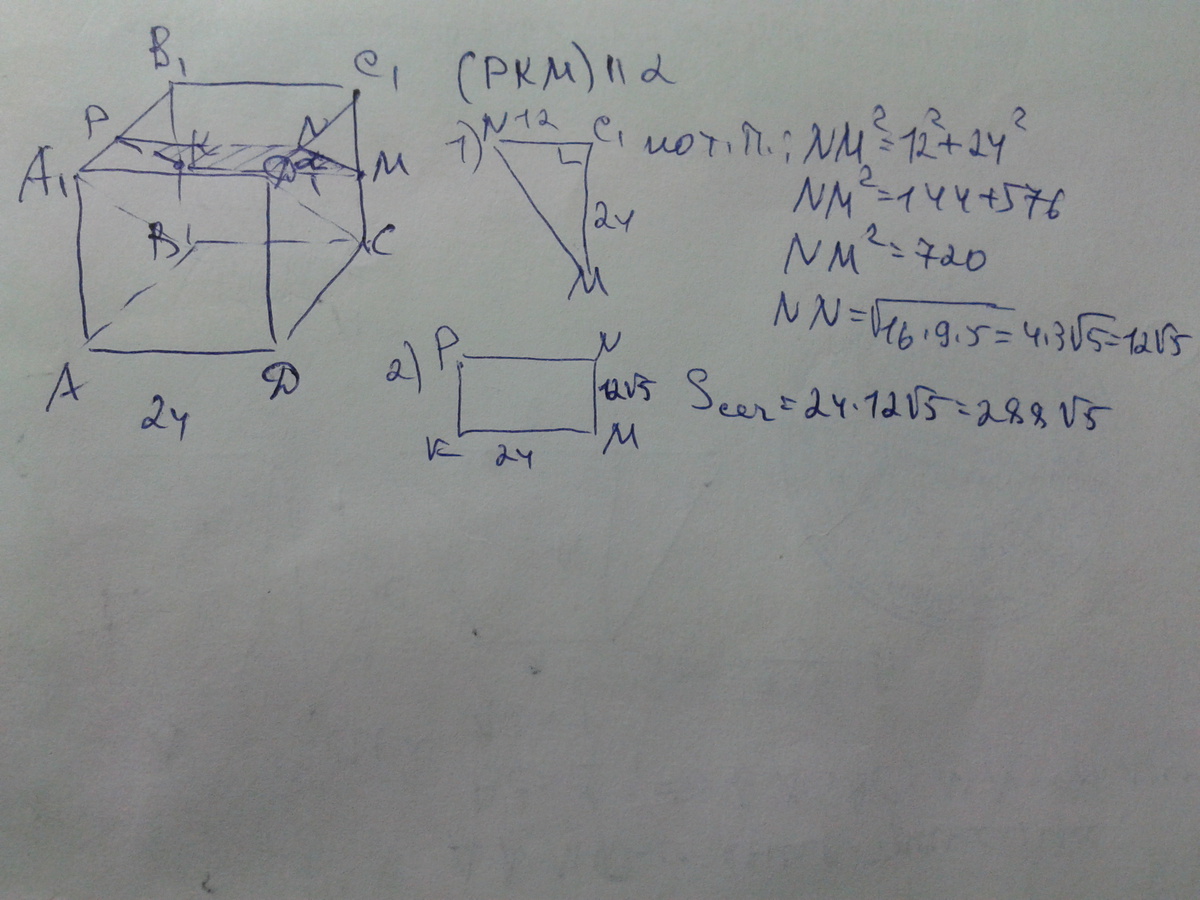 B₁
C₁
P
K
N
A₁
D₁
M
B
C
A
D
24
(PKM) || α
1) N 12 C₁
24
M
по т. П.: NM²=12²+24²
NM²=144+576
NM²=720
NN=√16·9·5=4·3√5=12√5
2) P N
12√5
K 24 M
Sсеч=24·12√5=288√5